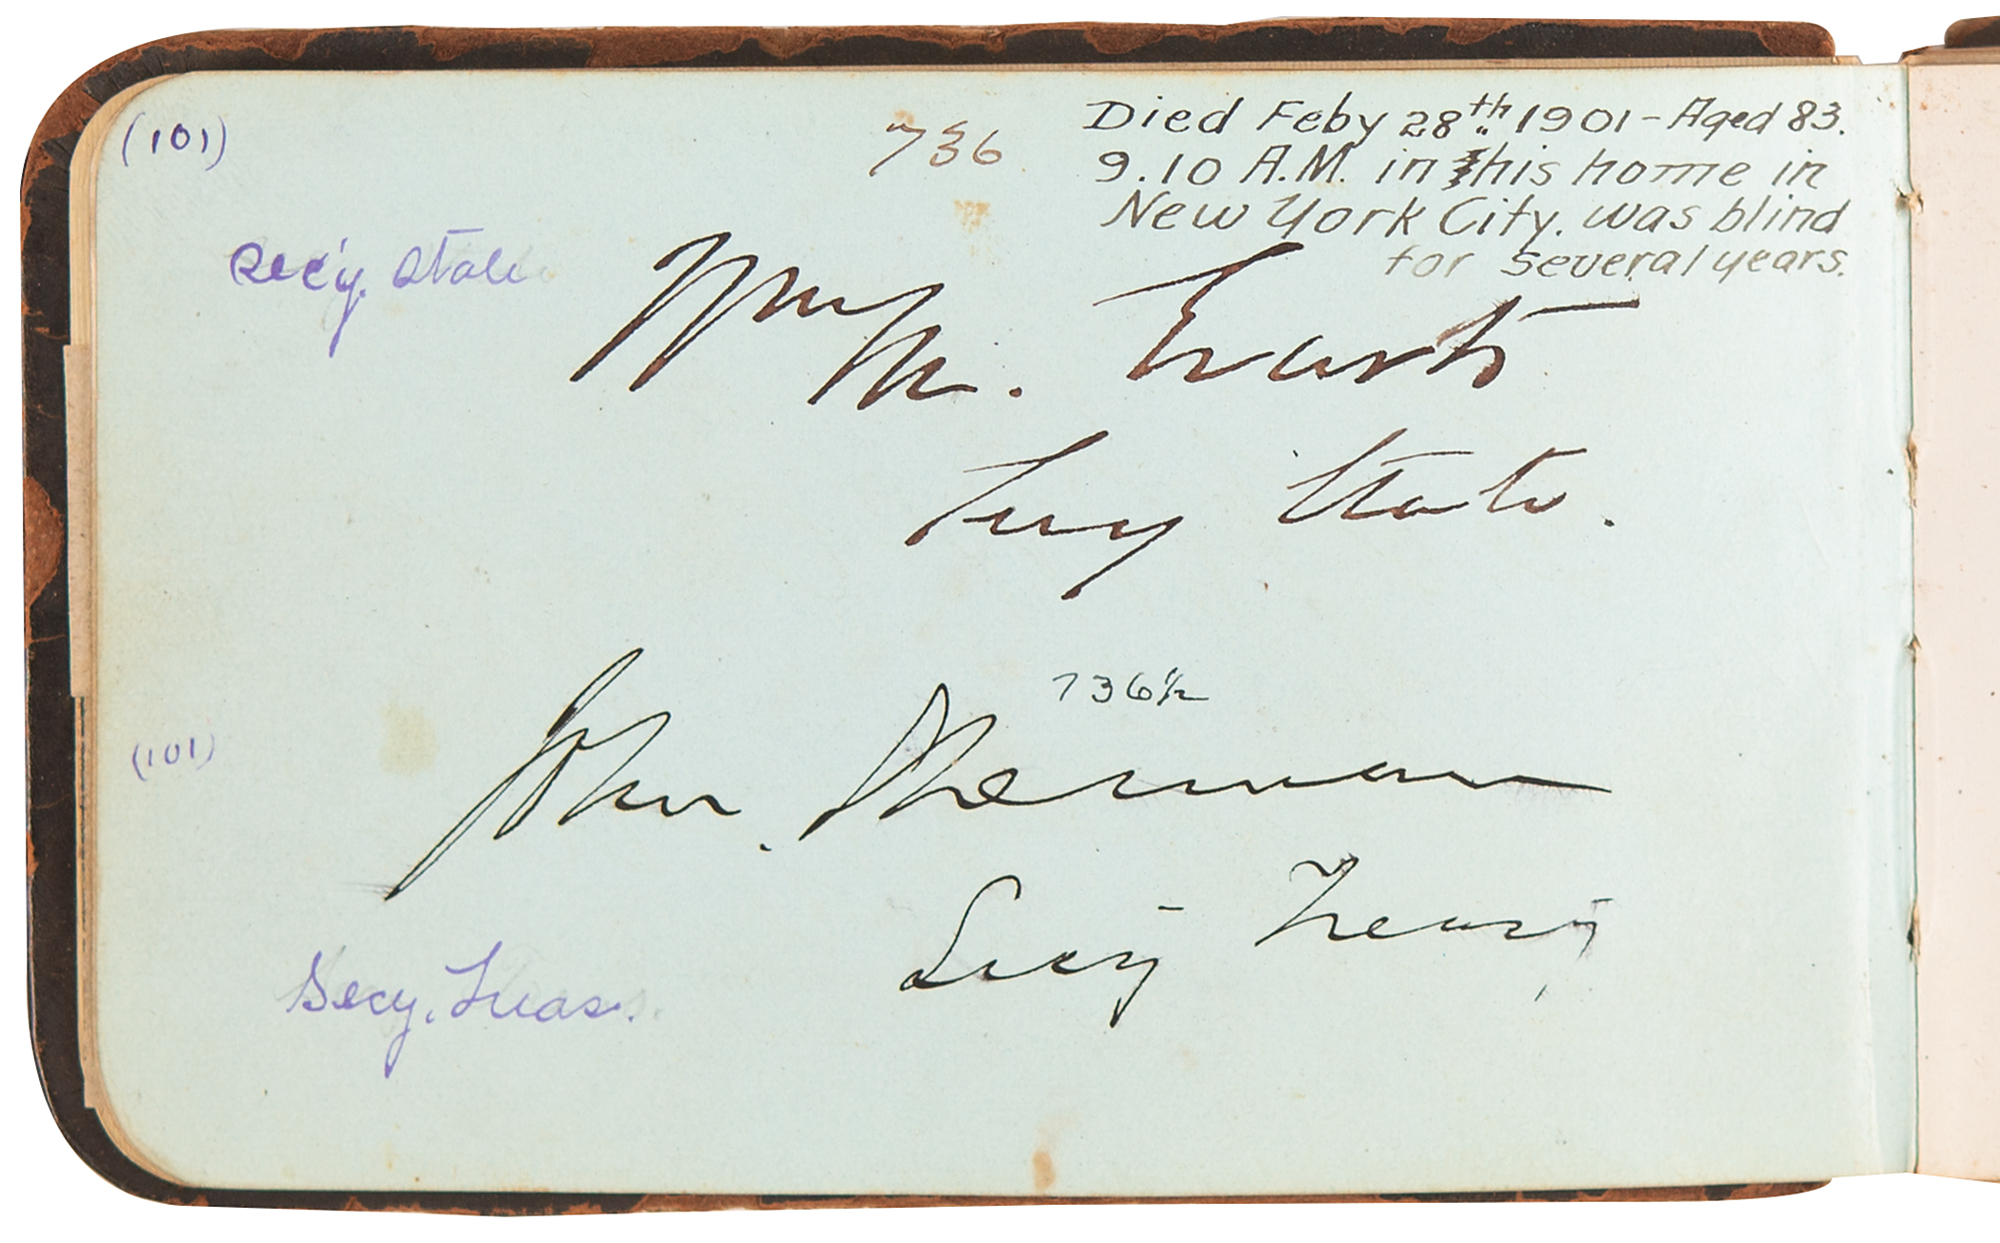 (101)
736
Died Feby 28th 1901 - Aged 83.
9.10 A.M. in his home in
New York City. was blind
for several years.
Sec'y. State
Wm M. Evarts
Secy State.
736½
(101)
John Sherman
Secy Treasy
Secy. Treas.